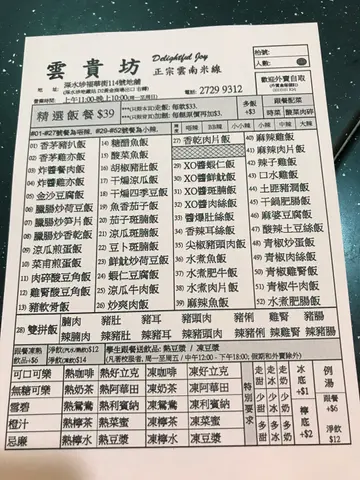 雲貴坊
Delightful Joy
正宗雲南米線
地址：深水埗福華街114號地舖
電話：2729 9312
營業時間：上午11:00-晚上10:00(周一至周日)
枱號：
人數：
歡迎外賣自取
精選飯餐 $39
多飯 +$3
跟餐配菜
時菜 酸菜肉碎
#01-#27號餐為唔辣, #29-#52號餐為小辣,
唔辣 小小辣 小辣 中辣 大辣
01) 香茅豬扒飯
02) 香茅雞亦飯
03) 炸醬餐肉飯
04) 炸醬雞亦飯
05) 金沙豆腐飯
06) 臘腸炒荷豆飯
07) 臘腸炒豆腐飯
08) 臘腸炒時菜飯
09) 涼瓜煎蛋飯
10) 菜甫煎蛋飯
11) 肉碎酸豆角飯
12) 雞腎酸豆角飯
13) 豬軟骨飯
14) 糖醋魚飯
15) 酸菜魚飯
16) 胡椒豬肚飯
17) 干煸涼瓜飯
18) 干煸四季豆飯
19) 魚茄子飯
20) 茄子斑腩飯
21) 涼瓜斑腩飯
22) 豆卜斑腩飯
23) 鮮魷炒荷豆飯
24) 蝦仁豆腐飯
25) 涼瓜肉片飯
26) 炒爽肉飯
27) 香乾肉片飯
29) XO醬蝦仁飯
30) XO醬鮮魷飯
31) XO醬斑腩飯
32) XO醬肉絲飯
33) 醬爆肚絲飯
34) 香辣耳絲飯
35) 尖椒豬頭肉飯
36) 水煮魚飯
37) 水煮肥牛飯
38) 水煮肉片飯
39) 麻辣魚飯
40) 麻辣雞飯
41) 麻椒肉片飯
42) 辣子雞飯
43) 口水雞飯
44) 土匪豬潤飯
45) 干鍋肥腸飯
46) 麻婆豆腐飯
47) 酸辣土豆絲飯
48) 青椒炒蛋飯
49) 青椒雞亦飯
50) 青椒肉片飯
51) 青椒肥牛飯
52) 青椒魷魚飯
28) 雙拼飯
腩肉 豬肚 豬耳 豬頭肉 豬俐 雞腎 豬腸
辣腩肉 辣豬肚 辣豬耳 辣豬頭肉 辣豬俐 辣雞腎 辣豬腸
跟餐凍熱飲品+$6
淨飲(汽水/熱飲)$12
淨飲(凍飲)$14
學生跟餐送飲品: 熱豆漿 / 凍豆漿
(凡著校服者, 周一至周五 / 中午12:00 - 下午18:00; 假期和外賣除外)
可口可樂 熱咖啡 熱好立克 凍咖啡 凍好立克
無糖可樂 熱奶茶 熱阿華田 凍奶茶 凍阿華田
雪碧 熱鴛鴦 熱利賓納 凍鴛鴦 凍利賓納
橙汁 熱檸茶 熱菜蜜 凍檸茶 凍菜蜜
忌廉 熱檸水 熱豆漿 凍檸水 凍豆漿
特別要求
走甜 走冰 走奶
少甜 少冰 少奶
多甜 多奶
冰底 +$1
檸底 +$2
例湯
跟餐 +$6
淨飲 $12